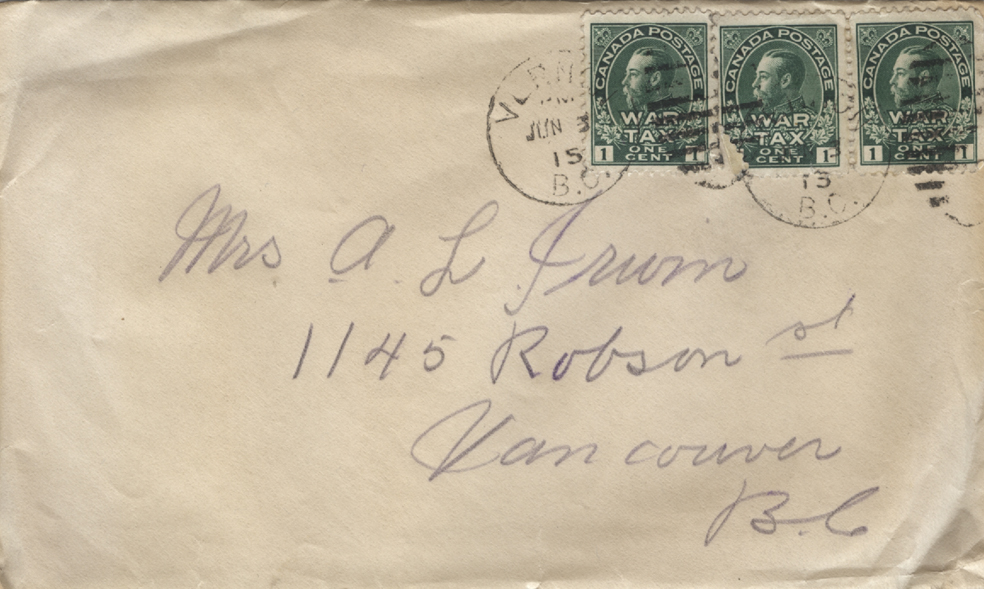 CANADA POSTAGE
WAR
TAX
ONE
CENT
1 1
CANADA POSTAGE
WAR
TAX
ONE
CENT
1
CANADA POSTAGE
WAR
TAX
ONE
CENT
1 1
PM
JUN 3
15
B.C.
15
B.C.
Mrs A L Irwin
1145 Robson st
Vancouver
B.C